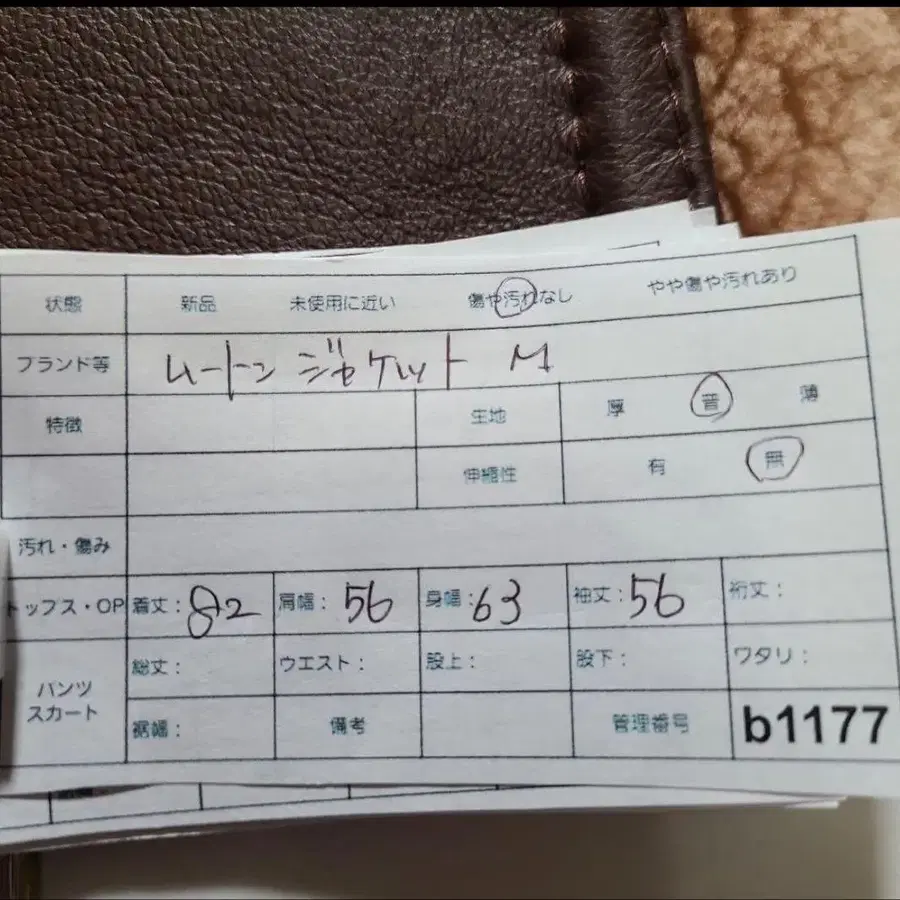 状態 新品 未使用に近い 傷や汚れなし やや傷や汚れあり
ブランド等 ムートン ジャケット M
特徴 生地 厚 普 薄
伸縮性 有 無
汚れ・傷み
トップス・OP 着丈: 82 肩幅: 56 身幅: 63 袖丈: 56 裄丈:
パンツ スカート 総丈: ウエスト: 股上: 股下: ワタリ:
裾幅: 備考 管理番号 b1177